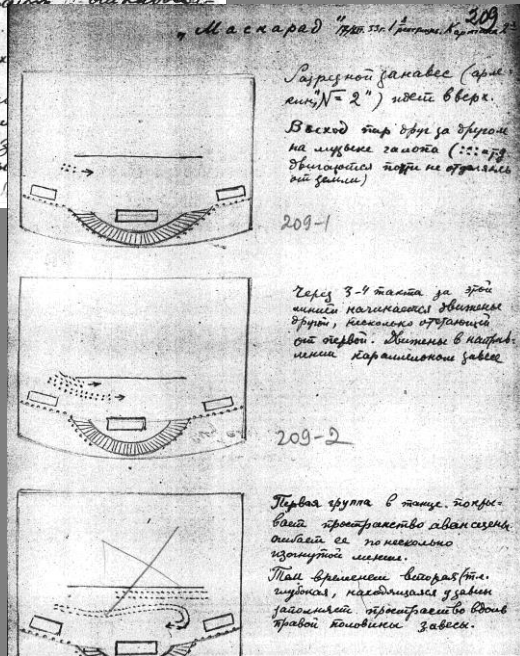 209
„Маскарад"
Разрезной занавес (арле-
кин „№ 2") идет вверх.
Выход пар друг за другом
на музыке галопа
двигаются почти не отделяясь
от земли)
209-1
Через 3-4 такта за этой
линией начинается движение
другой, несколько отстающей
от первой. Движение в направ-
лении параллельном завесе
209-2
Первая группа в танце покры-
вает пространство авансцены
огибает ее по несколько
изогнутой линии.
Тем временем вторая (т.е.
глубокая, находящаяся у завесы
заполняет пространство вдоль
правой половины завесы.